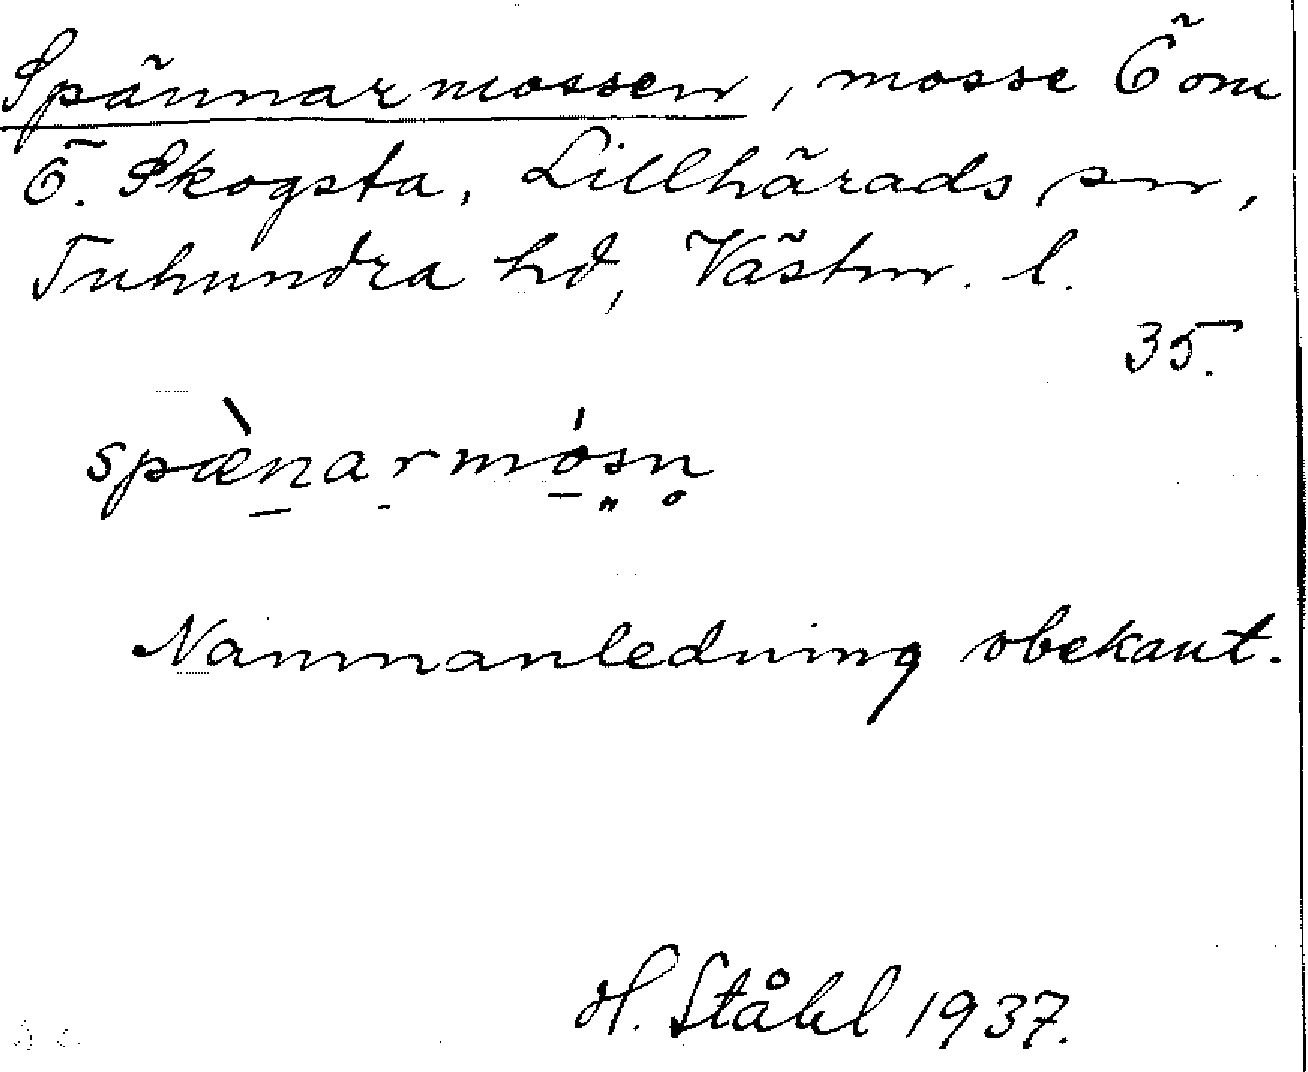 Spännarmossen, mosse Ö om
Ö. Skogsta, Lillhärads sn,
Tuhundra hd, Västm. l.
35.
spæ̀narmósn̥
Namnanledning obekant.
H. Ståhl 1937.